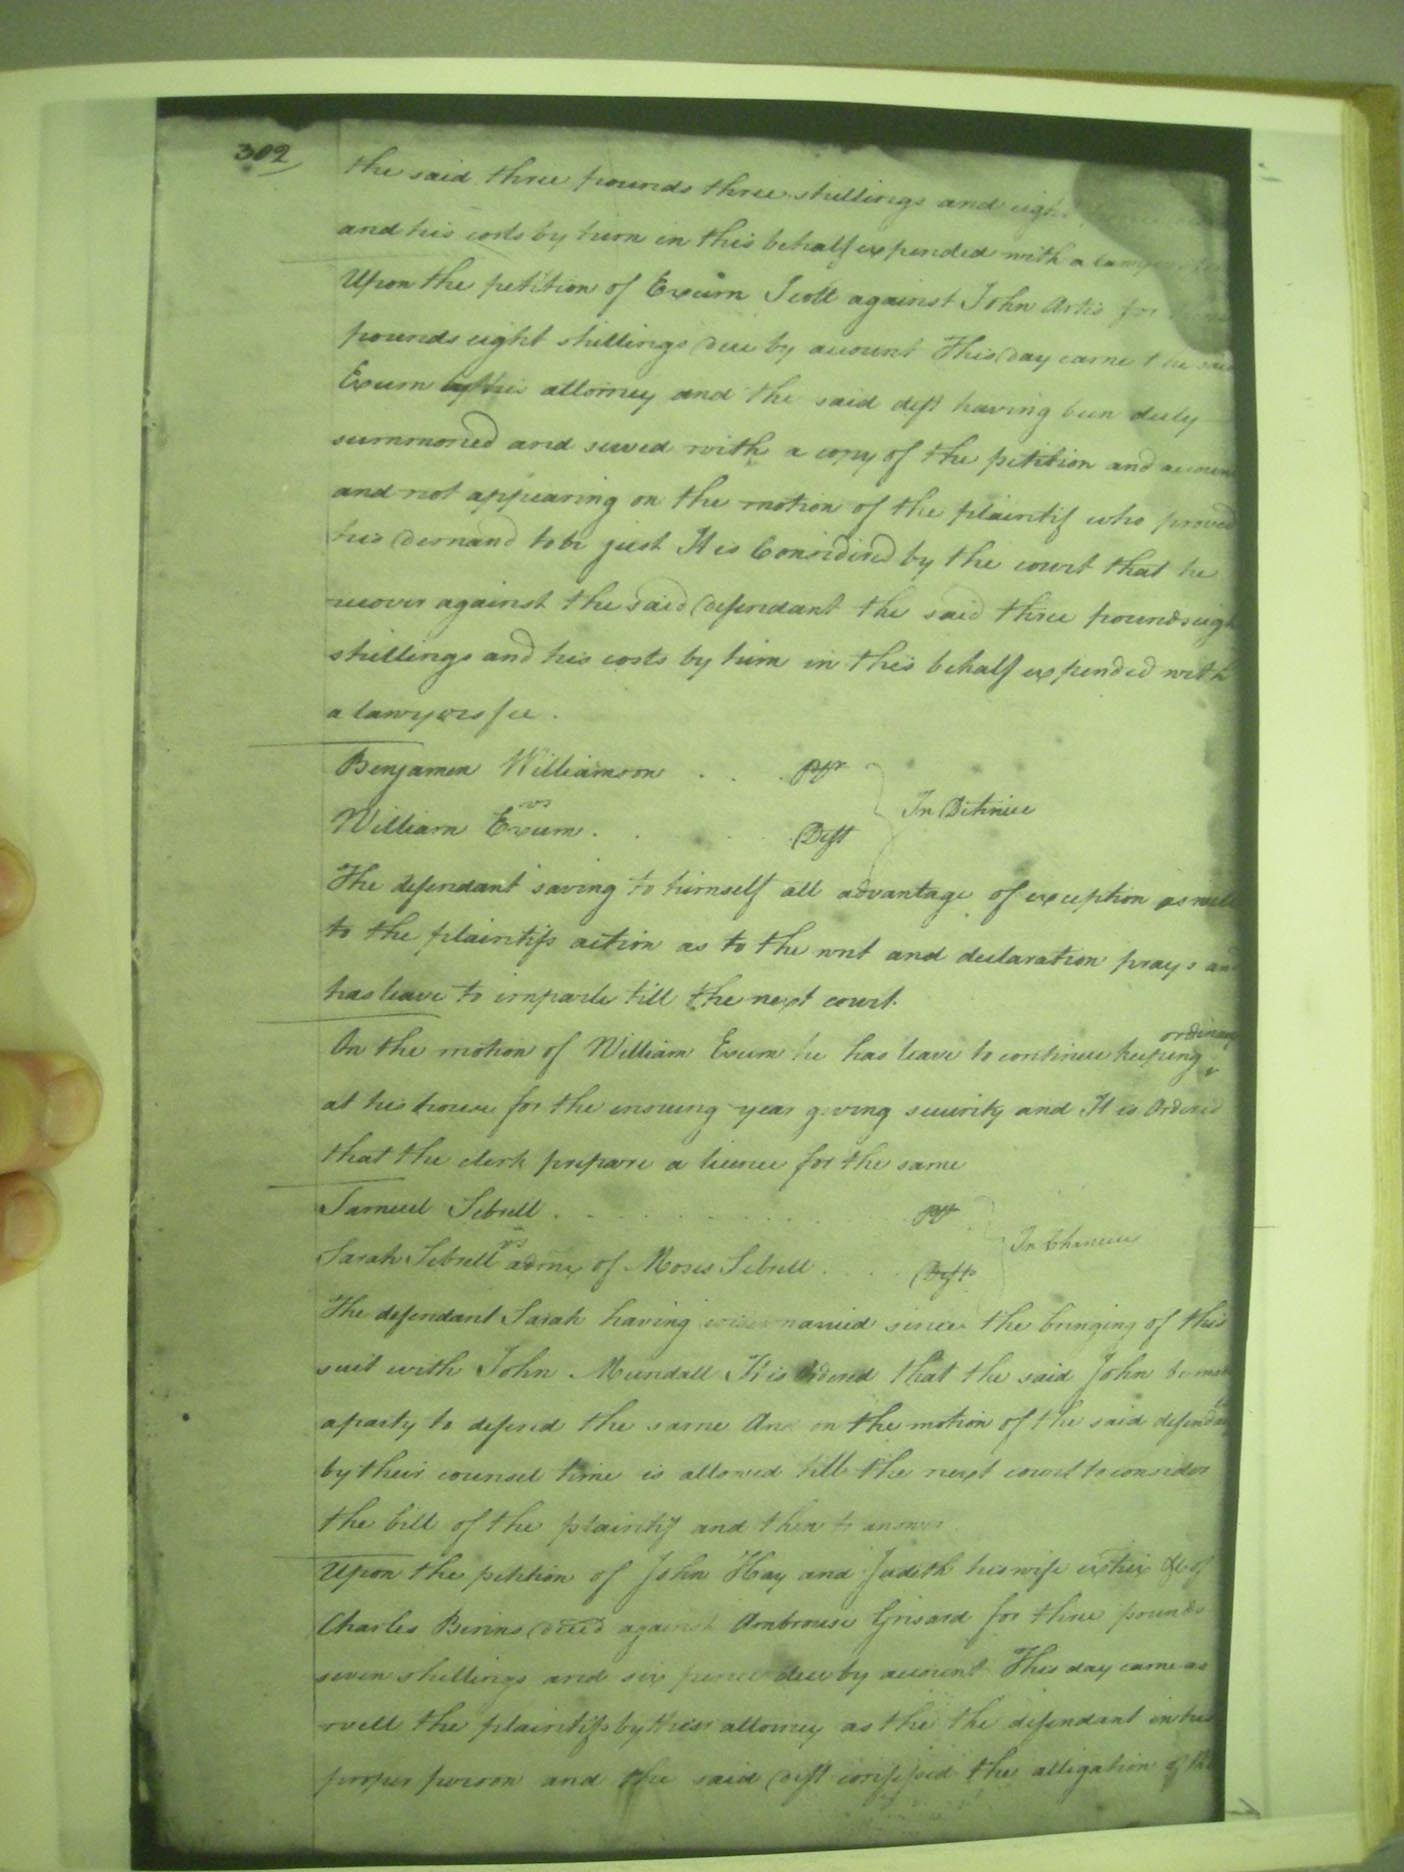 302
the said three pounds three shillings and eight
and his costs by him in this behalf expended with a lawyers
Upon the petition of Exum Scott against John Artis for three
pounds eight shillings due by account This day came the said
Exum by his attorney and the said deft having been duly
summoned and served with a copy of the petition and account
and not appearing on the motion of the plaintif who proved
his demand to be just It is Considered by the court that he
recover against the said defendant the said three pounds eight
shillings and his costs by him in this behalf expended with
a lawyers fee.
Benjamen Williamson . . . pltf
vs
William Exum . . . Deft
In Detinue
The defendant saving to himself all advantage of exception as well
to the plaintifs action as to the writ and declaration prays and
has leave to imparle till the next court.
ordinary
On the motion of William Exum he has leave to continue keeping
at his house for the ensuing year giving security and It is Ordered
that the clerk prepare a licence for the same
Samuel Sebrell . . . pltf
vs
Sarah Sebrell admx of Moses Sebrell . . . Defts
In Chancery
The defendant Sarah having married since the bringing of this
suit with John Mundall It is Ordered that the said John be made
a party to defend the same And on the motion of the said defendants
by their counsel time is allowed till the next court to consider
the bill of the plaintif and then to answer.
Upon the petition of John Hay and Judith his wife extrix &c of
Charles Binns decd against Ambrouse Grisard for three pounds
seven shillings and six pence due by account This day came as
well the plaintifs by their attorney as the the defendant in his
proper person and the said deft confessed the alligation of the